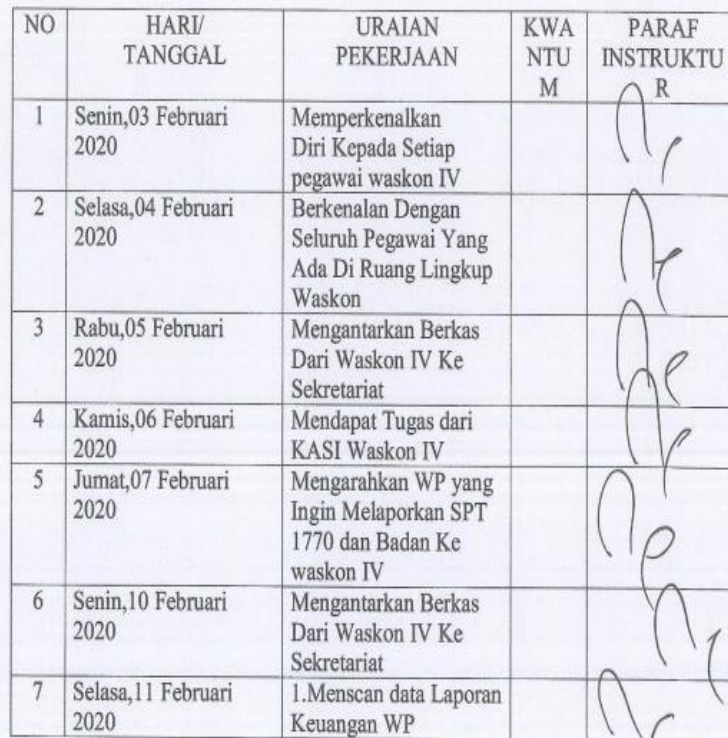 NO HARI/ URAIAN KWA PARAF
TANGGAL PEKERJAAN NTU INSTRUKTU
M R
1 Senin,03 Februari Memperkenalkan
2020 Diri Kepada Setiap
pegawai waskon IV
2 Selasa,04 Februari Berkenalan Dengan
2020 Seluruh Pegawai Yang
Ada Di Ruang Lingkup
Waskon
3 Rabu,05 Februari Mengantarkan Berkas
2020 Dari Waskon IV Ke
Sekretariat
4 Kamis,06 Februari Mendapat Tugas dari
2020 KASI Waskon IV
5 Jumat,07 Februari Mengarahkan WP yang
2020 Ingin Melaporkan SPT
1770 dan Badan Ke
waskon IV
6 Senin,10 Februari Mengantarkan Berkas
2020 Dari Waskon IV Ke
Sekretariat
7 Selasa,11 Februari 1.Menscan data Laporan
2020 Keuangan WP